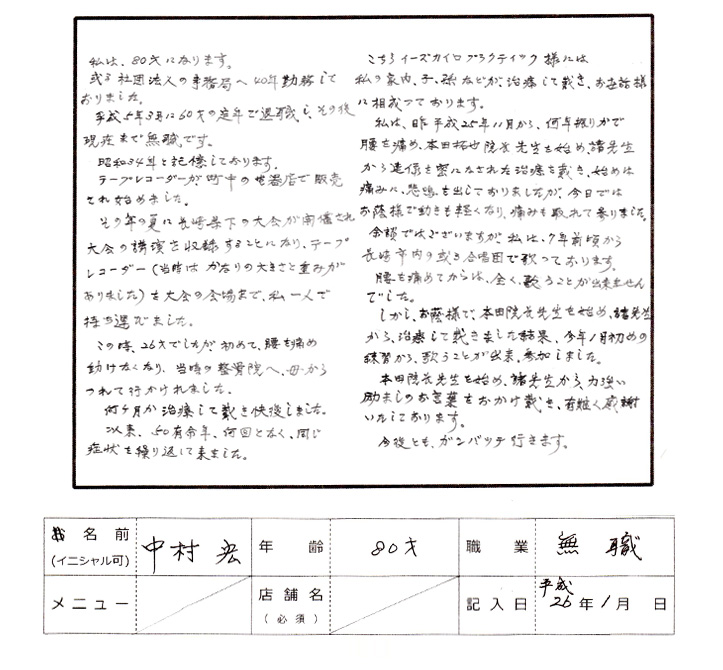 私は、80才になります。
或る社団法人の事務局へ40年勤務して
おりました。
平成5年3月に60才の定年で退職し、その後
現在まで無職です。
昭和34年と記憶しております。
テープレコーダーが町中の電器店で販売
され始めました。
その年の夏に長崎県下の大会が開催され
大会の講演を収録することになり、テープ
レコーダー(当時は かなりの大きさと重みが
ありました)を大会の会場まで、私一人で
持ち運びました。
この時、26才でしたが、初めて、腰を痛め
動けなくなり、当時の整骨院へ、母から
つれて行かれました。
何ヶ月か治療して戴き快復しました。
以来、50有余年、何回となく、同じ
症状を繰り返して来ました。
こちらイーズカイロプラクティック様には
私の家内、子、孫などが、治療して戴き、お世話様
に相成っております。
私は、昨平成25年11月から、何年振りかで
腰を痛め、本田拓也院長先生を始め、諸先生
から連信を密になされた治療を戴き、始めは
痛みに、悲鳴を出しておりましたが、今日では
お蔭様で動きも軽くなり、痛みも取れて参りました。
余談ではございますが、私は、7年前頃から
長崎市内の或る合唱団で歌っております。
腰を痛めてからは、全く、歌うことが出来ません
でした。
しかし、お蔭様で、本田院長先生を始め、諸先生
から、治療して戴きました結果、今年1月初めの
練習から、歌うことが出来、参加しました。
本田院長先生を始め、諸先生から、力強い
励ましのお言葉をおかけ戴き、有難く感謝
いたしております。
今後とも、ガンバッテ行きます。
お名前 (イニシャル可) 中村 宏 年齢 80才 職業 無職
メニュー 店舗名 (必須) 記入日 平成 26年 1月 日